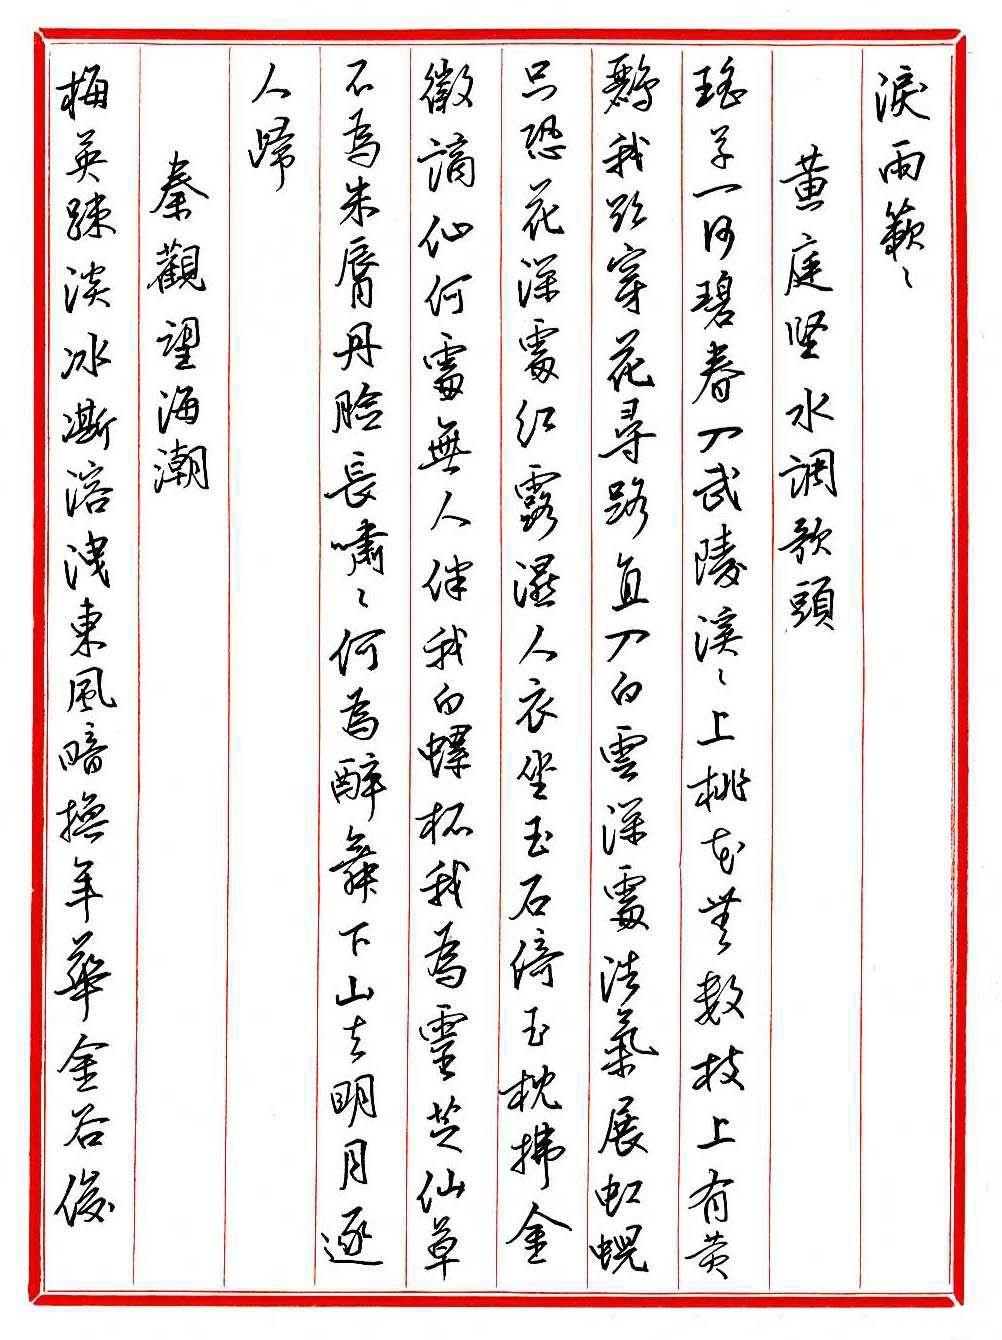 淚雨簌〻
黃庭坚水調歌頭
瑤草一何碧春入武陵溪〻上桃花無数枝上有黄
鸝我欲穿花尋路直入白雲深處浩氣展虹蜺
只恐花深處紅露濕人衣坐玉石倚玉枕拂金
徽謫仙何處無人伴我白螺杯我為靈芝仙草
不為朱脣丹臉長嘯〻何為醉舞下山去明月逐
人歸
秦觀望海潮
梅英疎淡冰澌溶洩東風暗換年華金谷俊